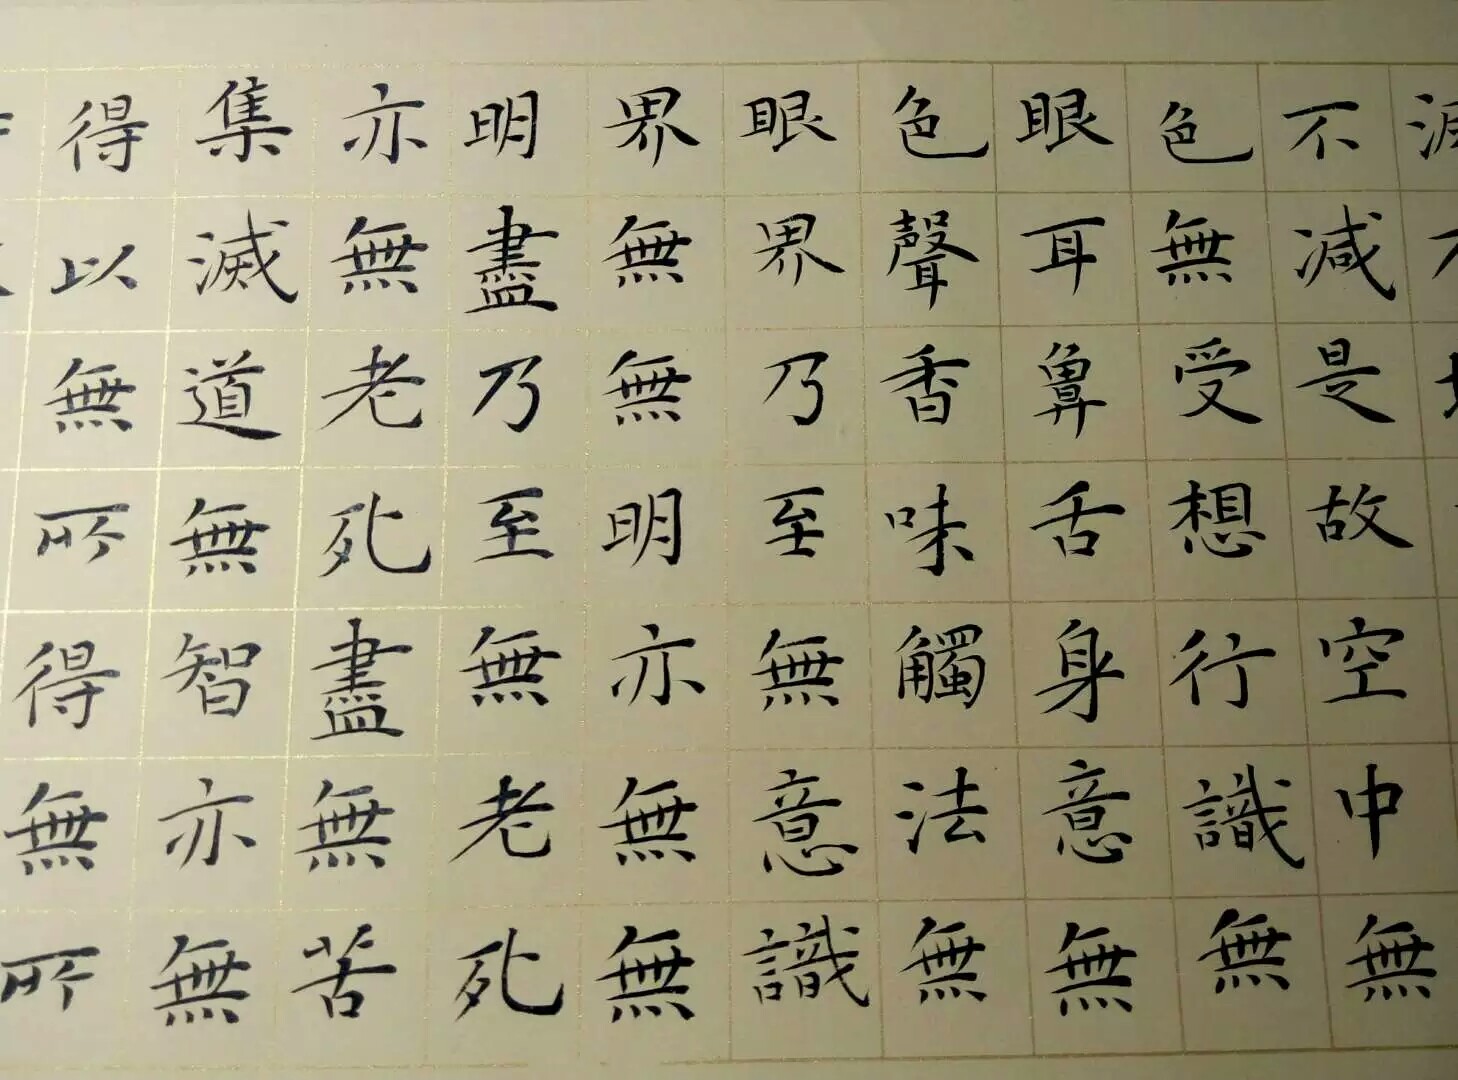 不減是故空中無
色無受想行識無
眼耳鼻舌身意無
色聲香味觸法無
眼界乃至無意識
界無明亦無無
明盡乃至無老死
亦無老死盡無苦
集滅道無智亦無
得以無所得無所